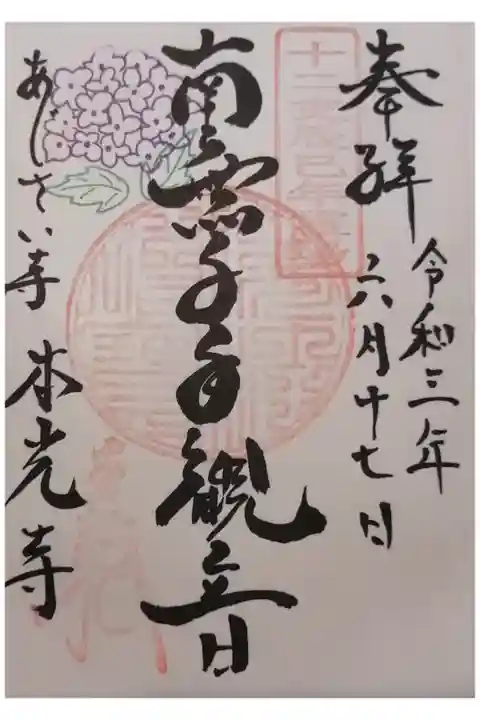 奉拝
令和三年
六月十七日
南無千手観音
あじさい寺
本光寺